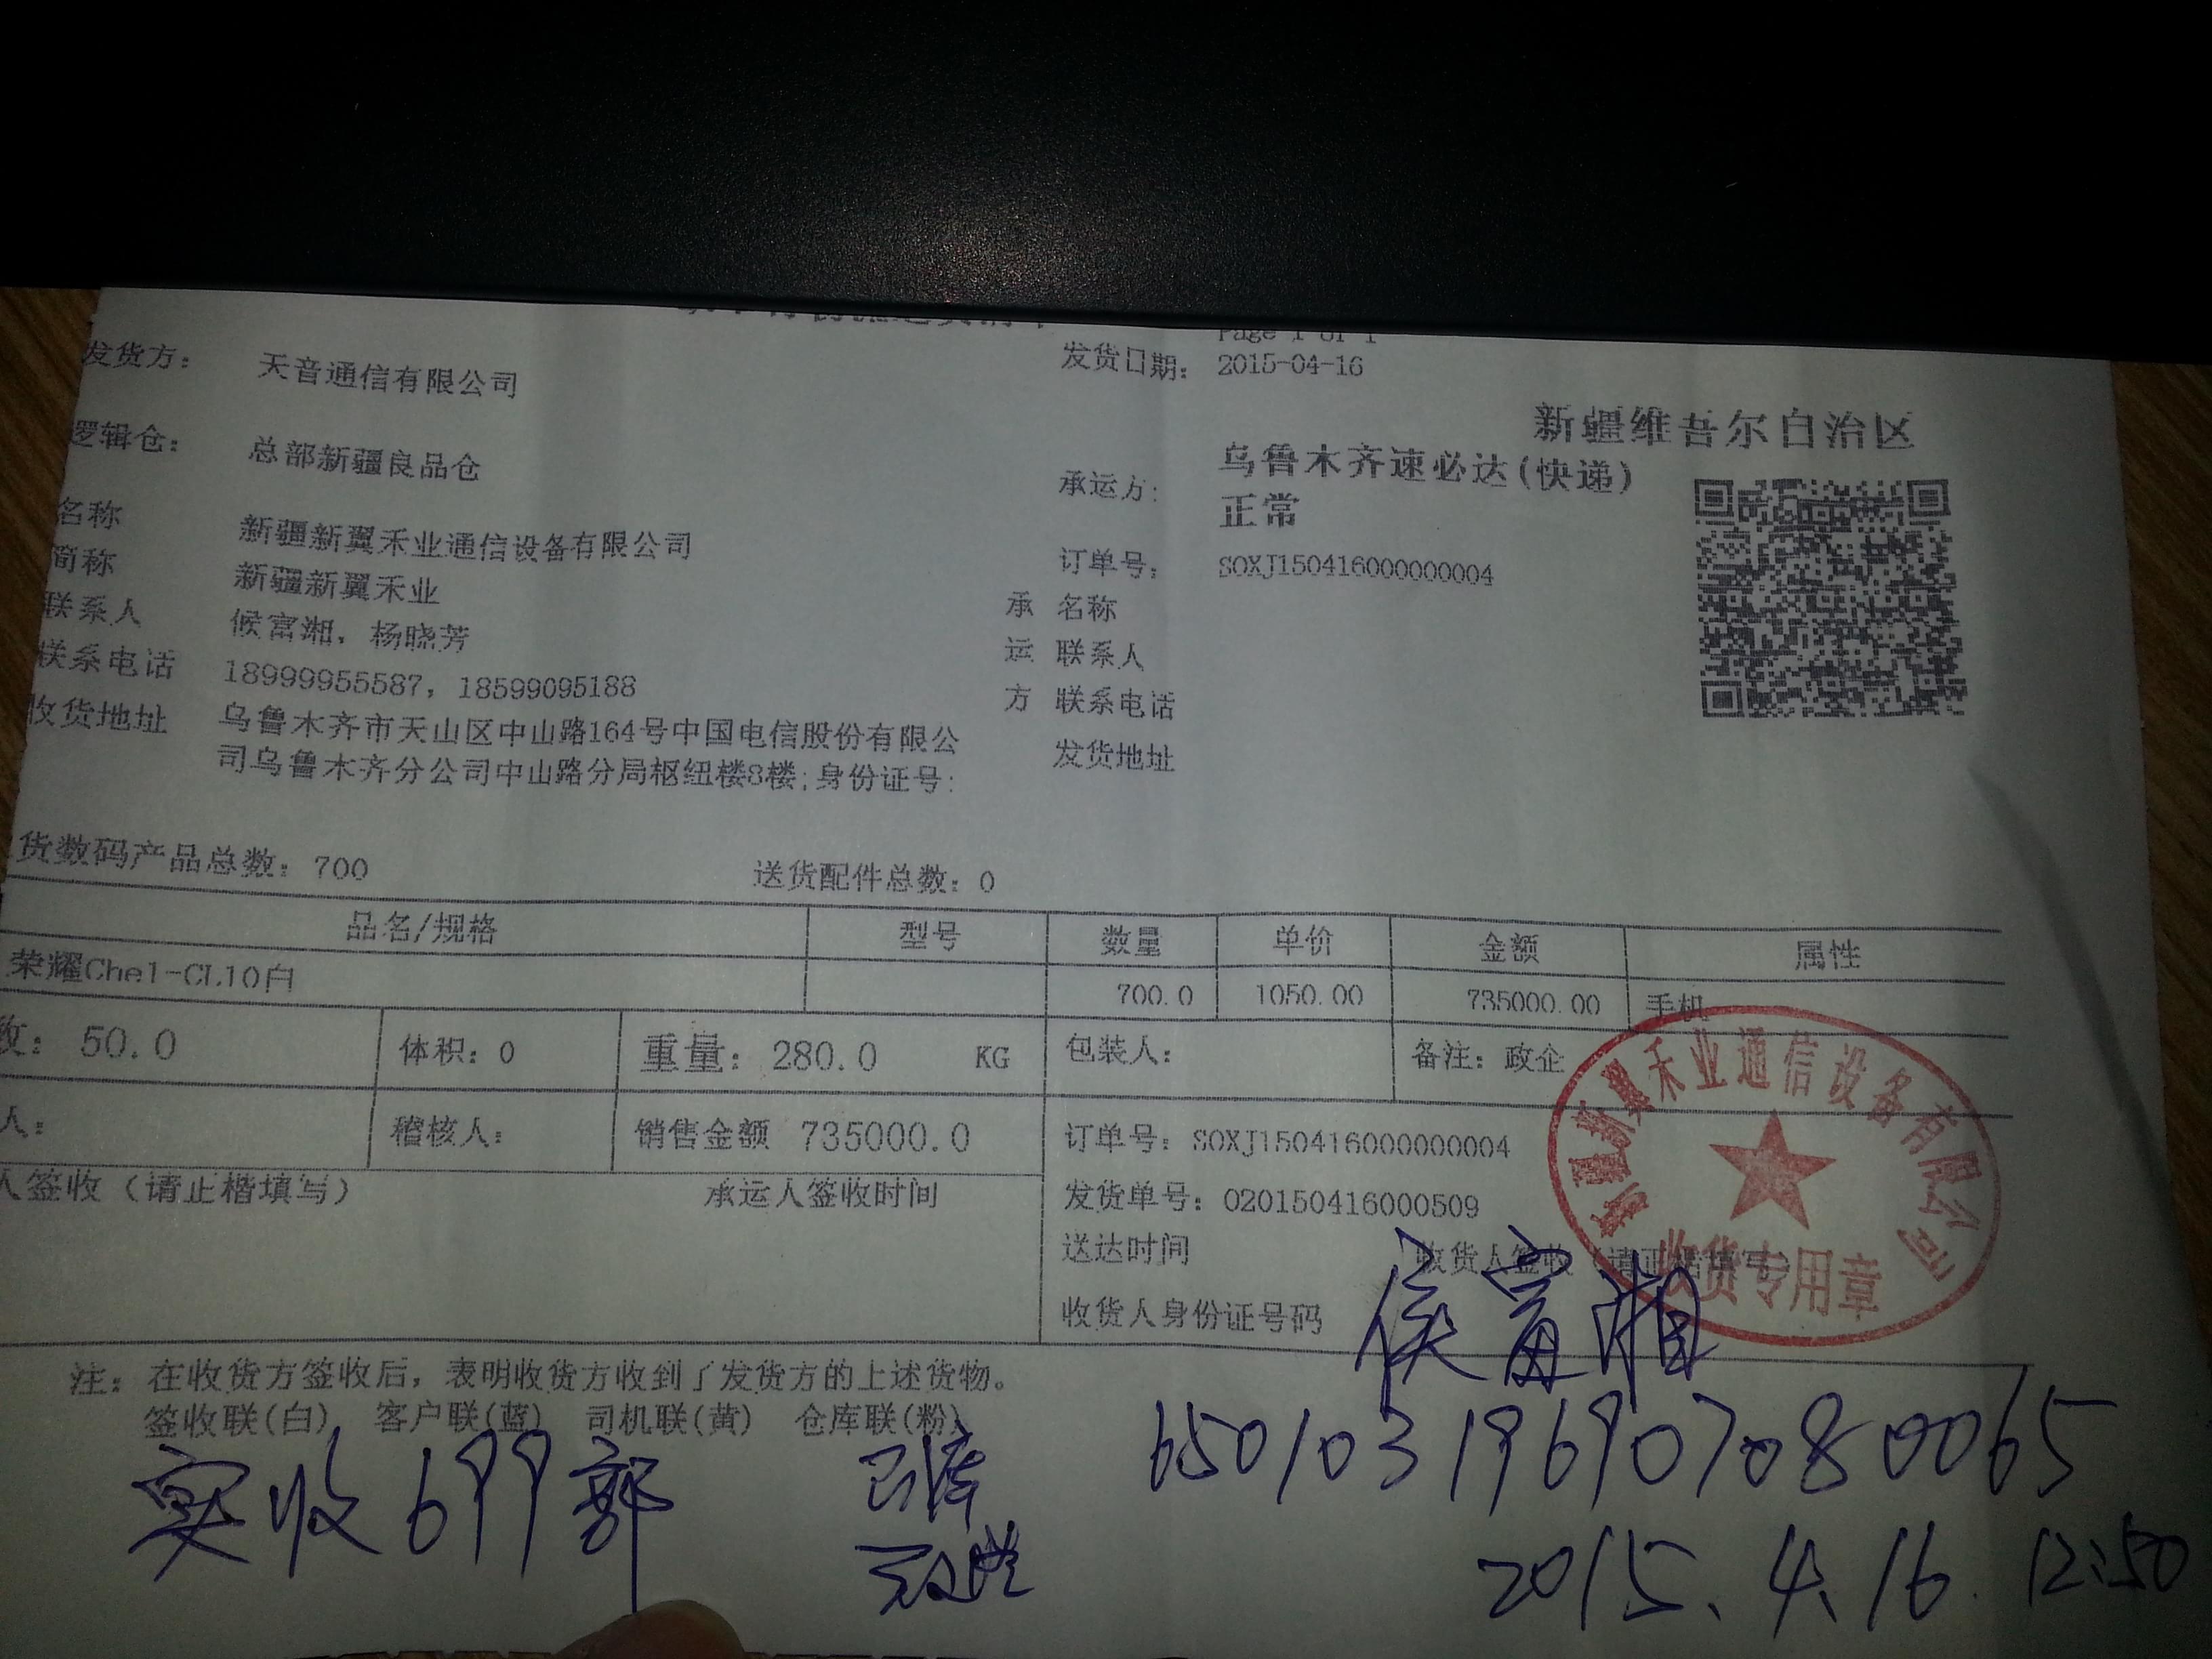 Page 1 of 1
发货方: 天音通信有限公司 发货日期: 2015-04-16
新疆维吾尔自治区
逻辑仓: 总部新疆良品仓 承运方: 乌鲁木齐速必达(快递)
正常
名称 新疆新翼禾业通信设备有限公司 订单号: SOXJ150416000000004
简称 新疆新翼禾业 承 名称
联系人 候富湘, 杨晓芳 运 联系人
联系电话 18999955587, 18599095188 方 联系电话
收货地址 乌鲁木齐市天山区中山路164号中国电信股份有限公 发货地址
司乌鲁木齐分公司中山路分局枢纽楼8楼;身份证号:
货数码产品总数: 700 送货配件总数: 0
品名/规格 型号 数量 单价 金额 属性
荣耀Che1-CL10白 700.0 1050.00 735000.00 手机
数: 50.0 体积: 0 重量: 280.0 KG 包装人: 备注: 政企
人: 稽核人: 销售金额 735000.0 订单号: SOXJ150416000000004
人签收(请正楷填写) 承运人签收时间 发货单号: 020150416000509
送达时间 收货人签收(请正楷填写)
收货人身份证号码 侯富湘
新疆新翼禾业通信设备有限公司
收货专用章
注: 在收货方签收后, 表明收货方收到了发货方的上述货物。
签收联(白) 客户联(蓝) 司机联(黄) 仓库联(粉)
650103196907080065
实收699部
2015.4.16. 12:50